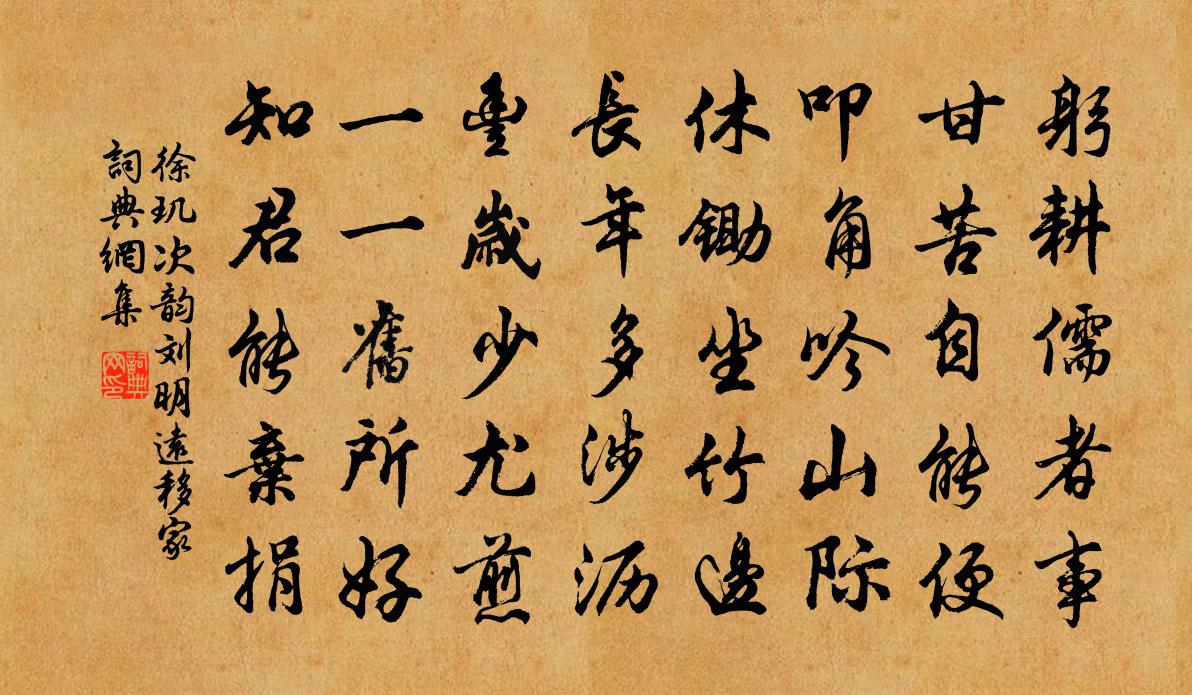 躬耕儒者事
甘苦自能便
叩角吟山际
休鋤坐竹邊
長年多涉沥
豊歲少尤煎
一一舊所好
知君能棄捐
徐玑次韵刘明遠移家
詞典網集
詞典网印